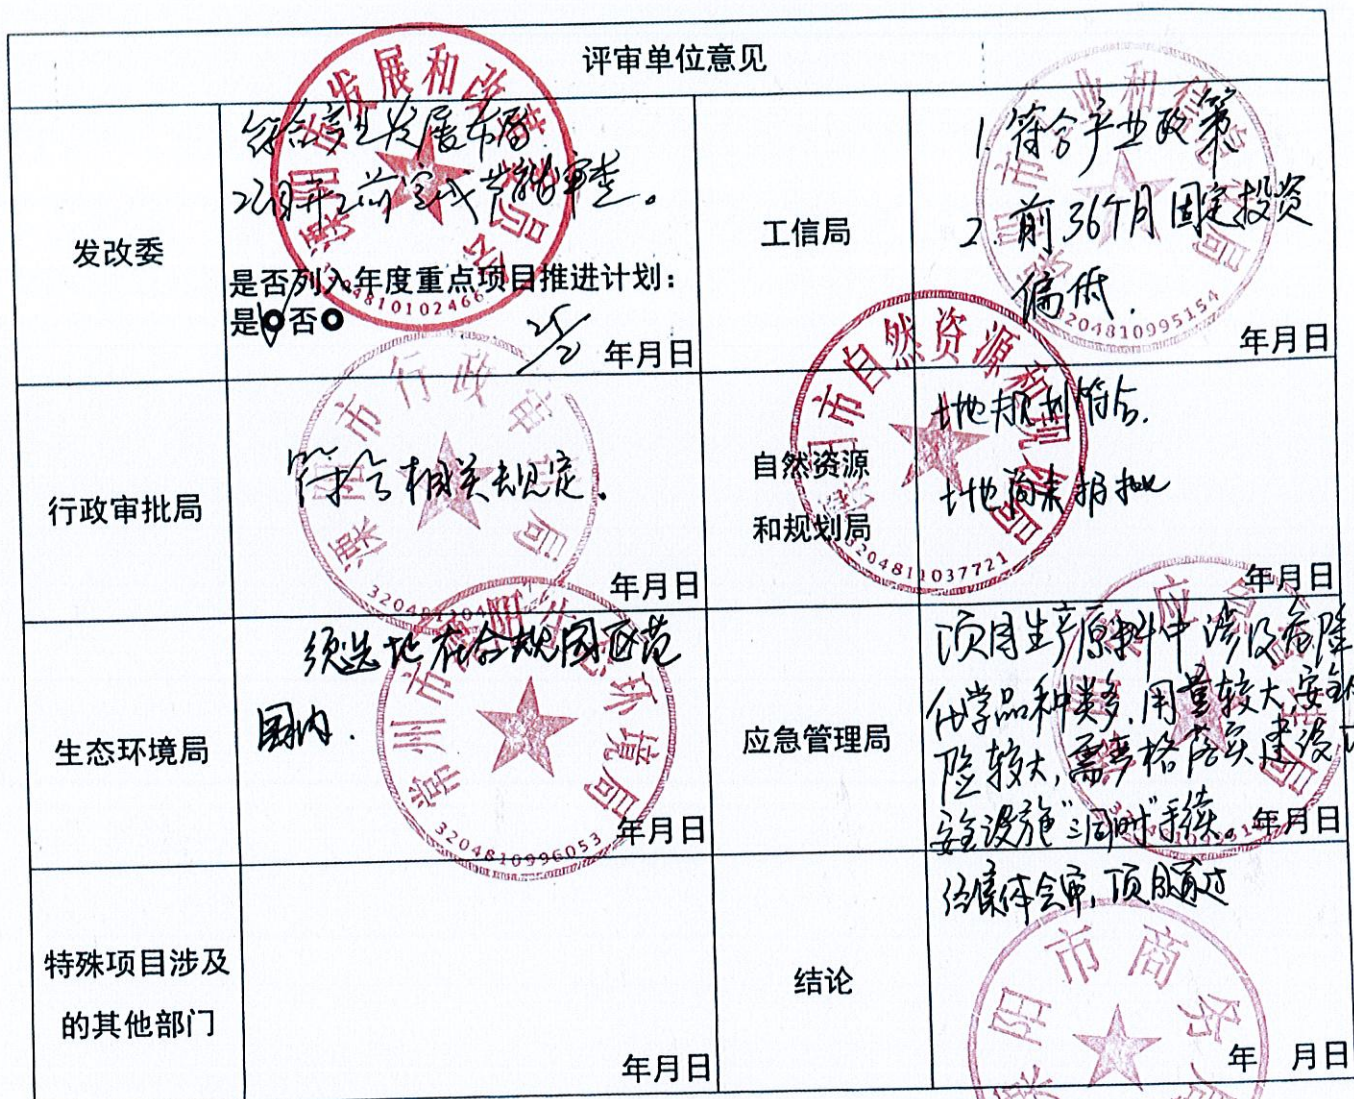 评审单位意见
发改委
符合产业发展布局.
项目开工前完成节能审查。
是否列入年度重点项目推进计划：
是 否
25/2
年月日
工信局
1. 符合产业政策
2. 前36个月固定投资
偏低.
年月日
行政审批局
符合相关规定.
年月日
自然资源
和规划局
土地规划符合.
土地尚未报批
年月日
生态环境局
须选地在合规园区范
围内.
年月日
应急管理局
项目生产原料中涉及危险
化学品种类多,用量较大,安全
险较大,需严格落实建设
安全设施"三同时"手续。
年月日
特殊项目涉及
的其他部门
年月日
结论
经集体会审,项目通过
年 月日
发展和改革
4810102466
3204810995154
行政审
局
市自然资源和规
局
3204811037721
常州市
环境局
3204810996053
应
市商务